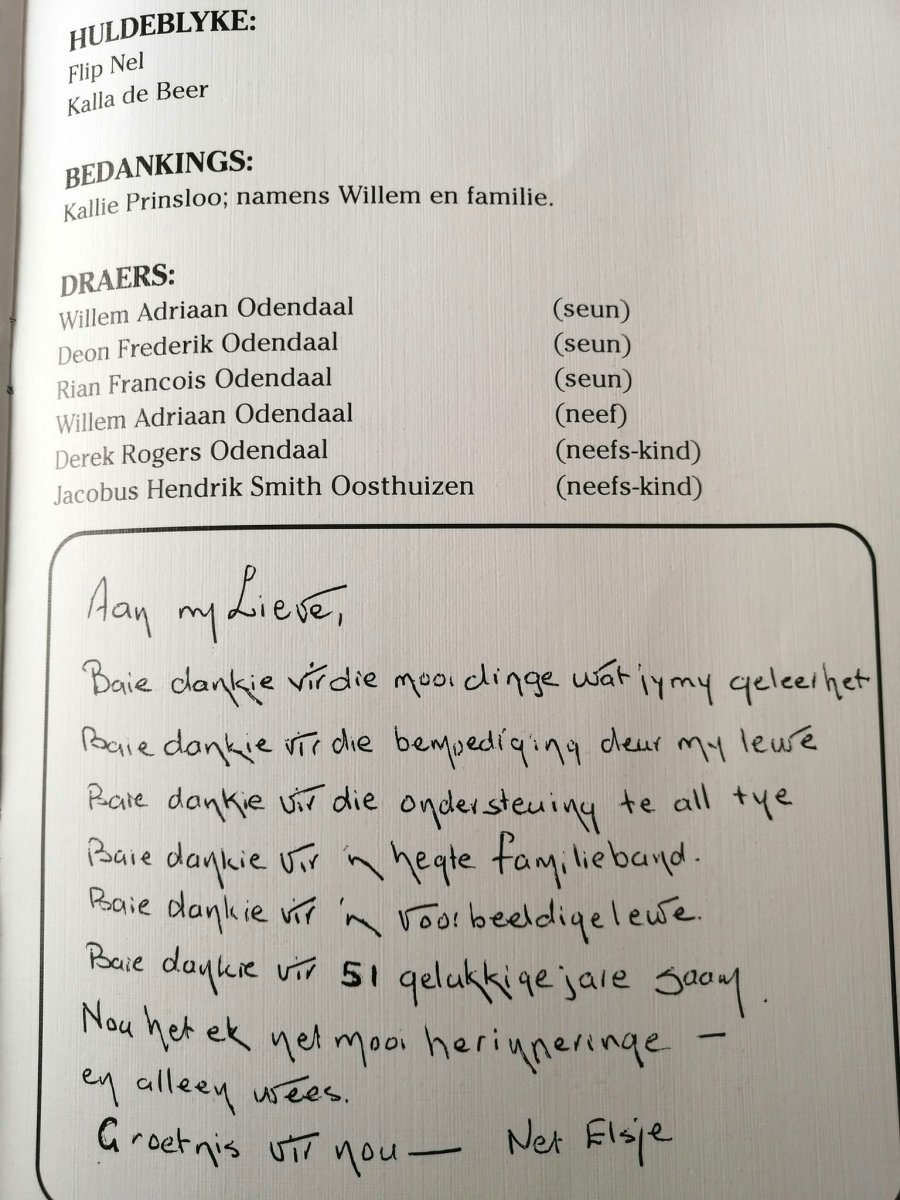 HULDEBLYKE:
Flip Nel
Kalla de Beer
BEDANKINGS:
Kallie Prinsloo; namens Willem en familie.
DRAERS:
Willem Adriaan Odendaal (seun)
Deon Frederik Odendaal (seun)
Rian Francois Odendaal (seun)
Willem Adriaan Odendaal (neef)
Derek Rogers Odendaal (neefs-kind)
Jacobus Hendrik Smith Oosthuizen (neefs-kind)
Aan my Lieve,
Baie dankie vir die mooi dinge wat jy my geleer het
Baie dankie vir die bemoediging deur my lewe
Baie dankie vir die ondersteuing te all tye
Baie dankie vir 'n hegte familieband.
Baie dankie vir 'n voorbeeldige lewe.
Baie dankie vir 51 gelukkige jare saam.
Nou het ek net mooi herinneringe –
en alleen wees.
Groetnis vir nou — Net Elsje